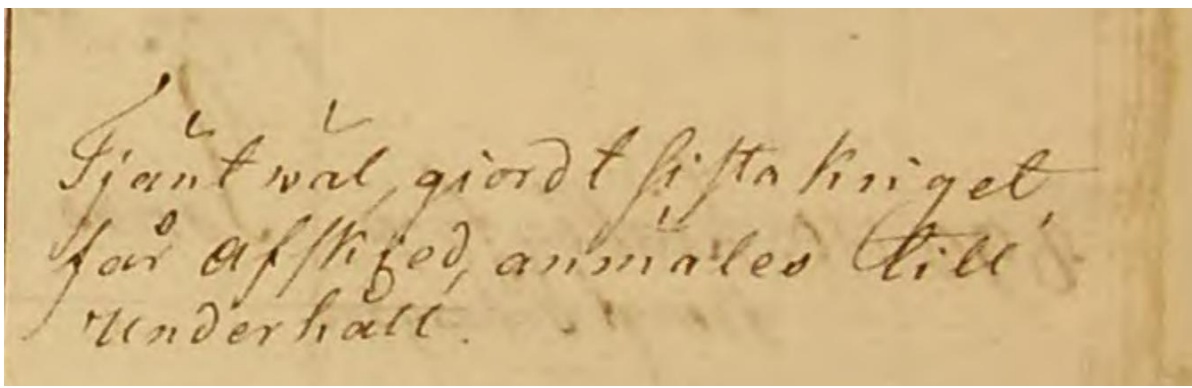 Tjänt wäl, giordt sista kriget,
får Afskjed, anmäles till
Underhåll.